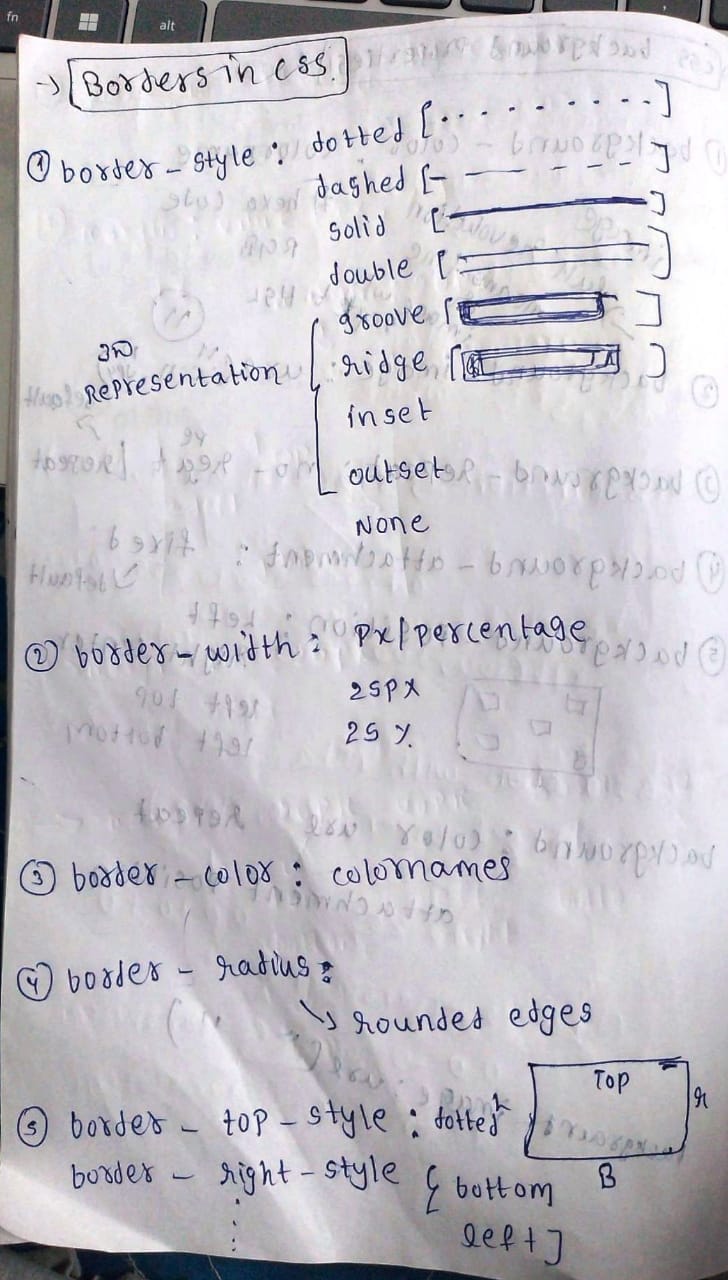 fn
alt
→ Borders in css.
① border - style : dotted [. . . . . . . . . .]
dashed [- — — - - -]
solid [ ]
double [ ]
groove [ ]
3D
Representation
ridge [ ]
inset
outset
None
② border - width : px/percentage
25px
25 %
③ border - color : colornames
④ border - radius :
↳ rounded edges
⑤ border - top - style : dotted
Top
r
B
border - right - style { bottom
left ]